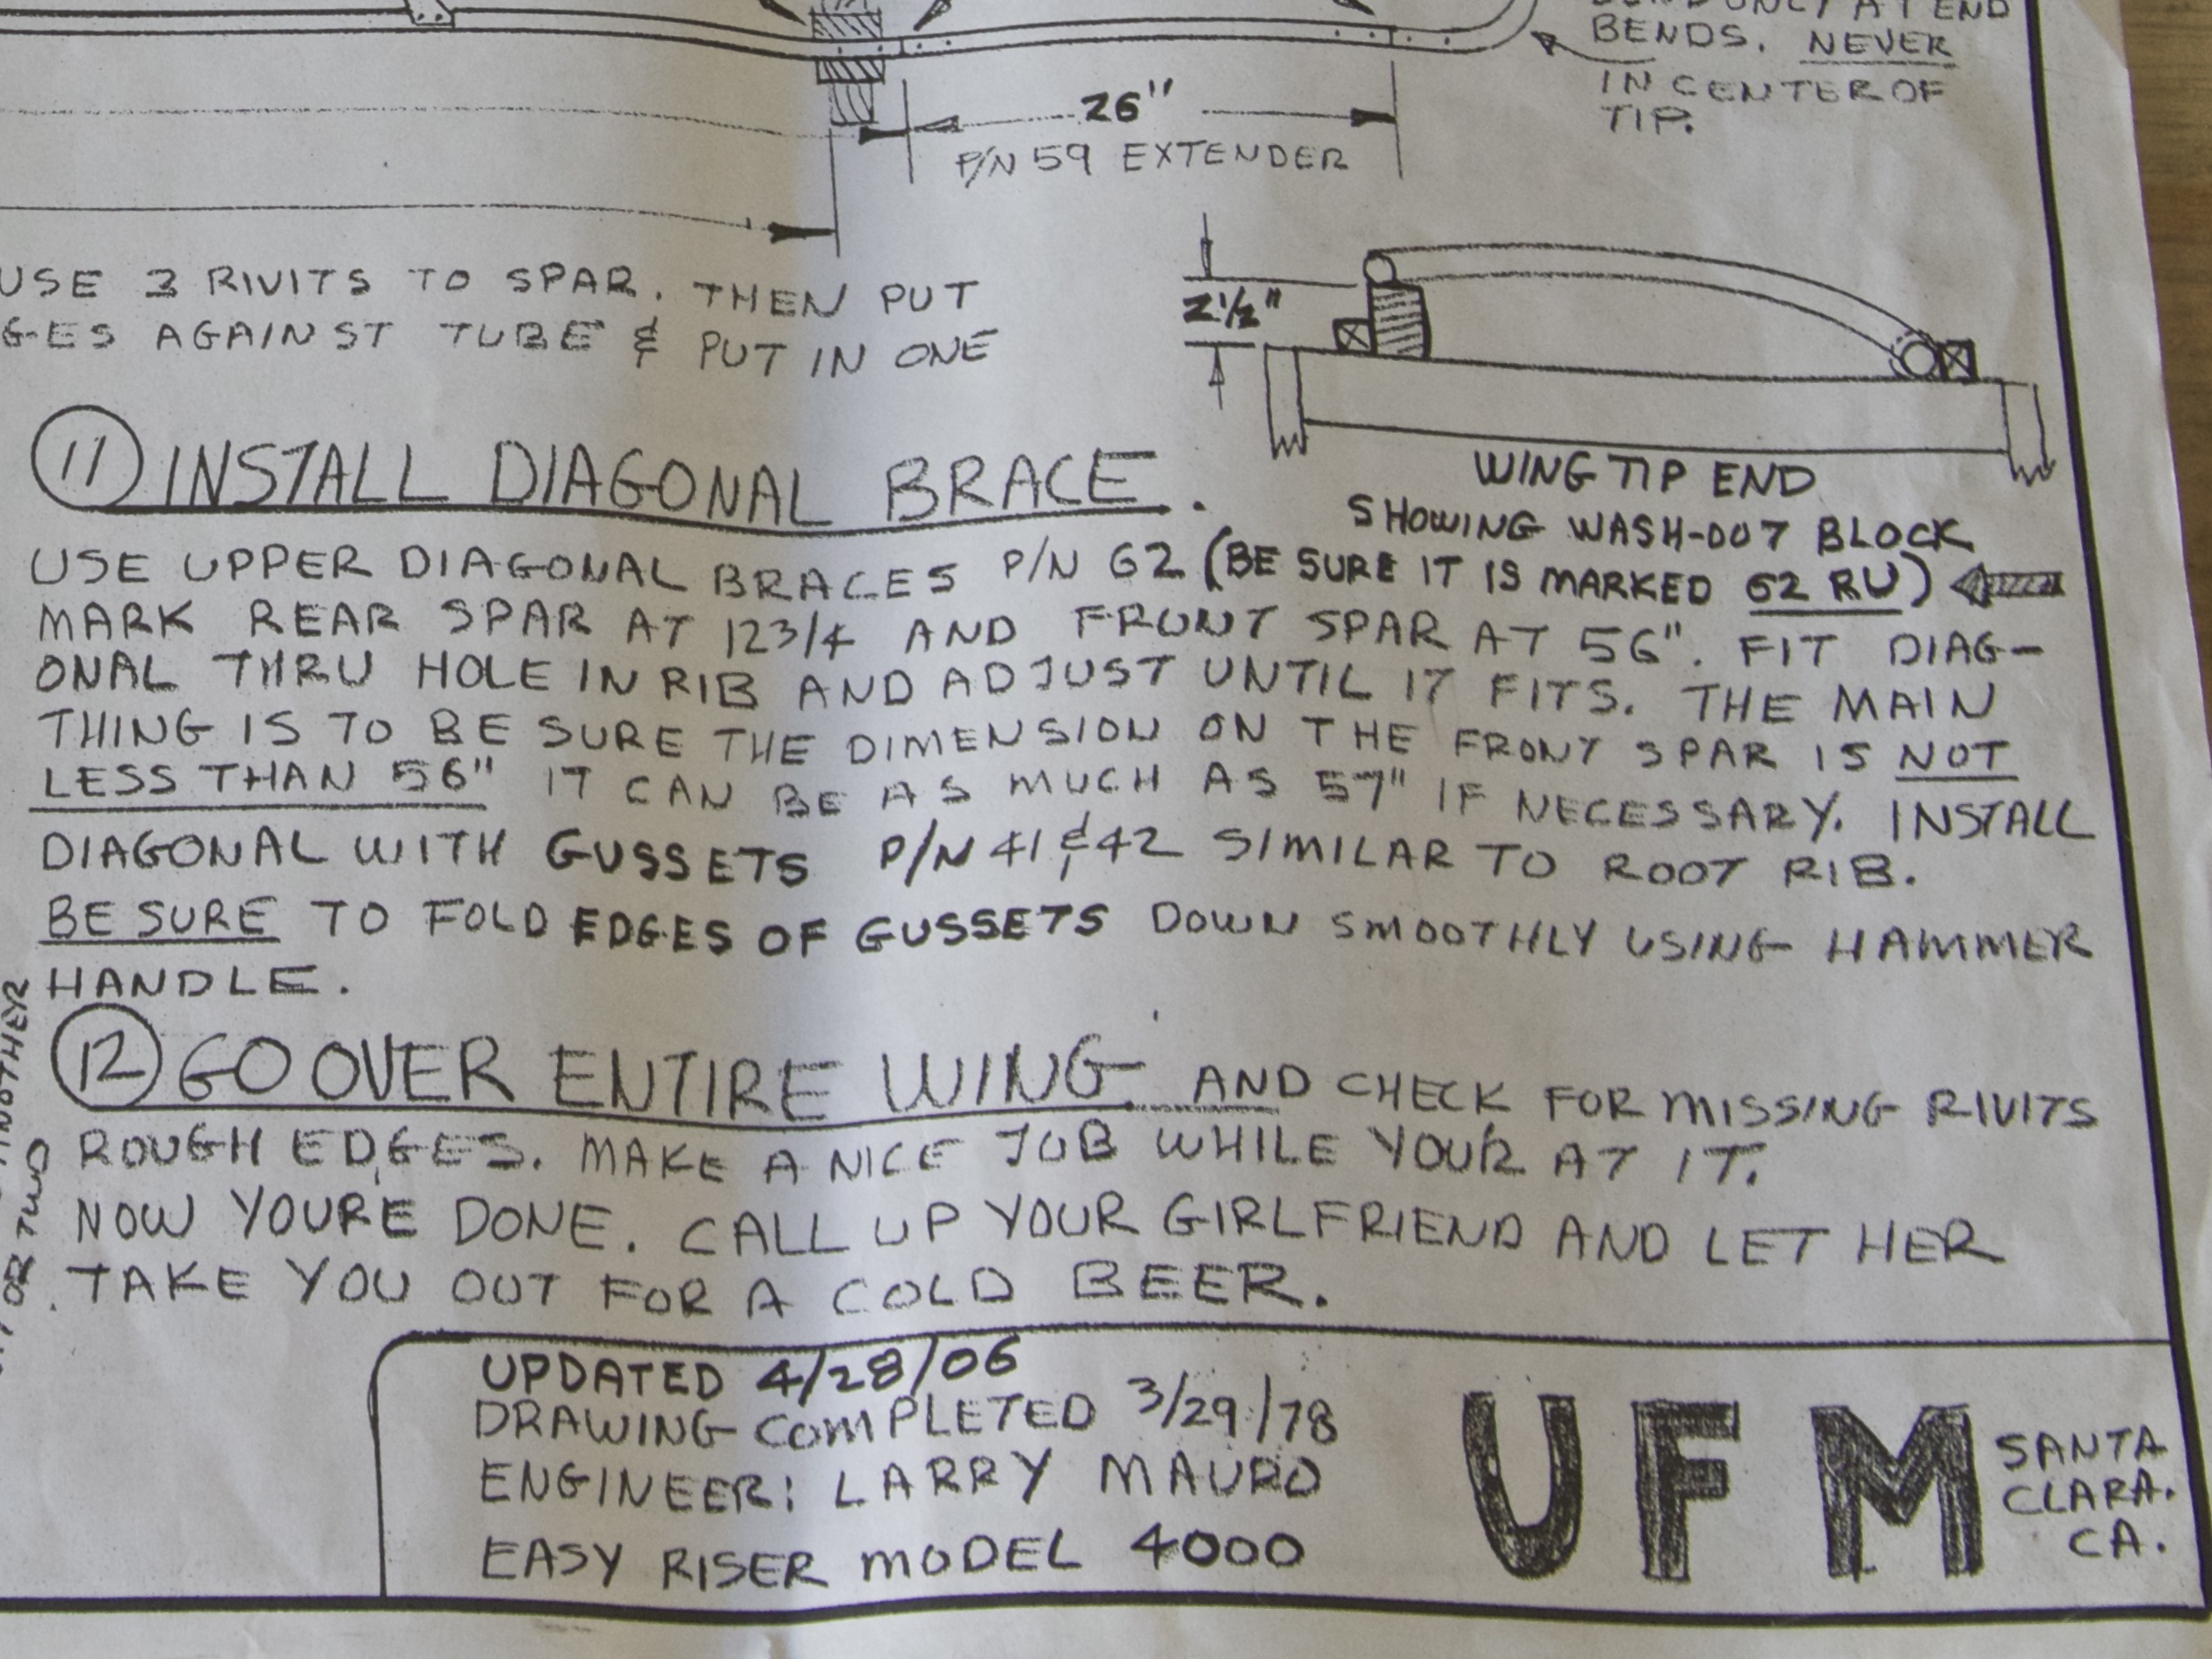 AT END
BENDS. NEVER
IN CENTER OF
TIP.
26"
P/N 59 EXTENDER
USE 3 RIVITS TO SPAR. THEN PUT
AGAINST TUBE & PUT IN ONE
2½"
WING TIP END
SHOWING WASH-OUT BLOCK
11 INSTALL DIAGONAL BRACE.
USE UPPER DIAGONAL BRACES P/N 62 (BE SURE IT IS MARKED 62 RU)
MARK REAR SPAR AT 123/4 AND FRONT SPAR AT 56". FIT DIAG-
ONAL THRU HOLE IN RIB AND ADJUST UNTIL IT FITS. THE MAIN
THING IS TO BE SURE THE DIMENSION ON THE FRONT SPAR IS NOT
LESS THAN 56" IT CAN BE AS MUCH AS 57" IF NECESSARY. INSTALL
DIAGONAL WITH GUSSETS P/N 41 & 42 SIMILAR TO ROOT RIB.
BE SURE TO FOLD EDGES OF GUSSETS DOWN SMOOTHLY USING HAMMER
HANDLE.
12 GO OVER ENTIRE WING AND CHECK FOR MISSING RIVITS
ROUGH EDGES. MAKE A NICE JOB WHILE YOUR AT IT.
NOW YOURE DONE. CALL UP YOUR GIRLFRIEND AND LET HER
TAKE YOU OUT FOR A COLD BEER.
OR TWO
UPDATED 4/28/06
DRAWING COMPLETED 3/29/78
ENGINEER: LARRY MAURO
EASY RISER MODEL 4000
UFM
SANTA
CLARA.
CA.